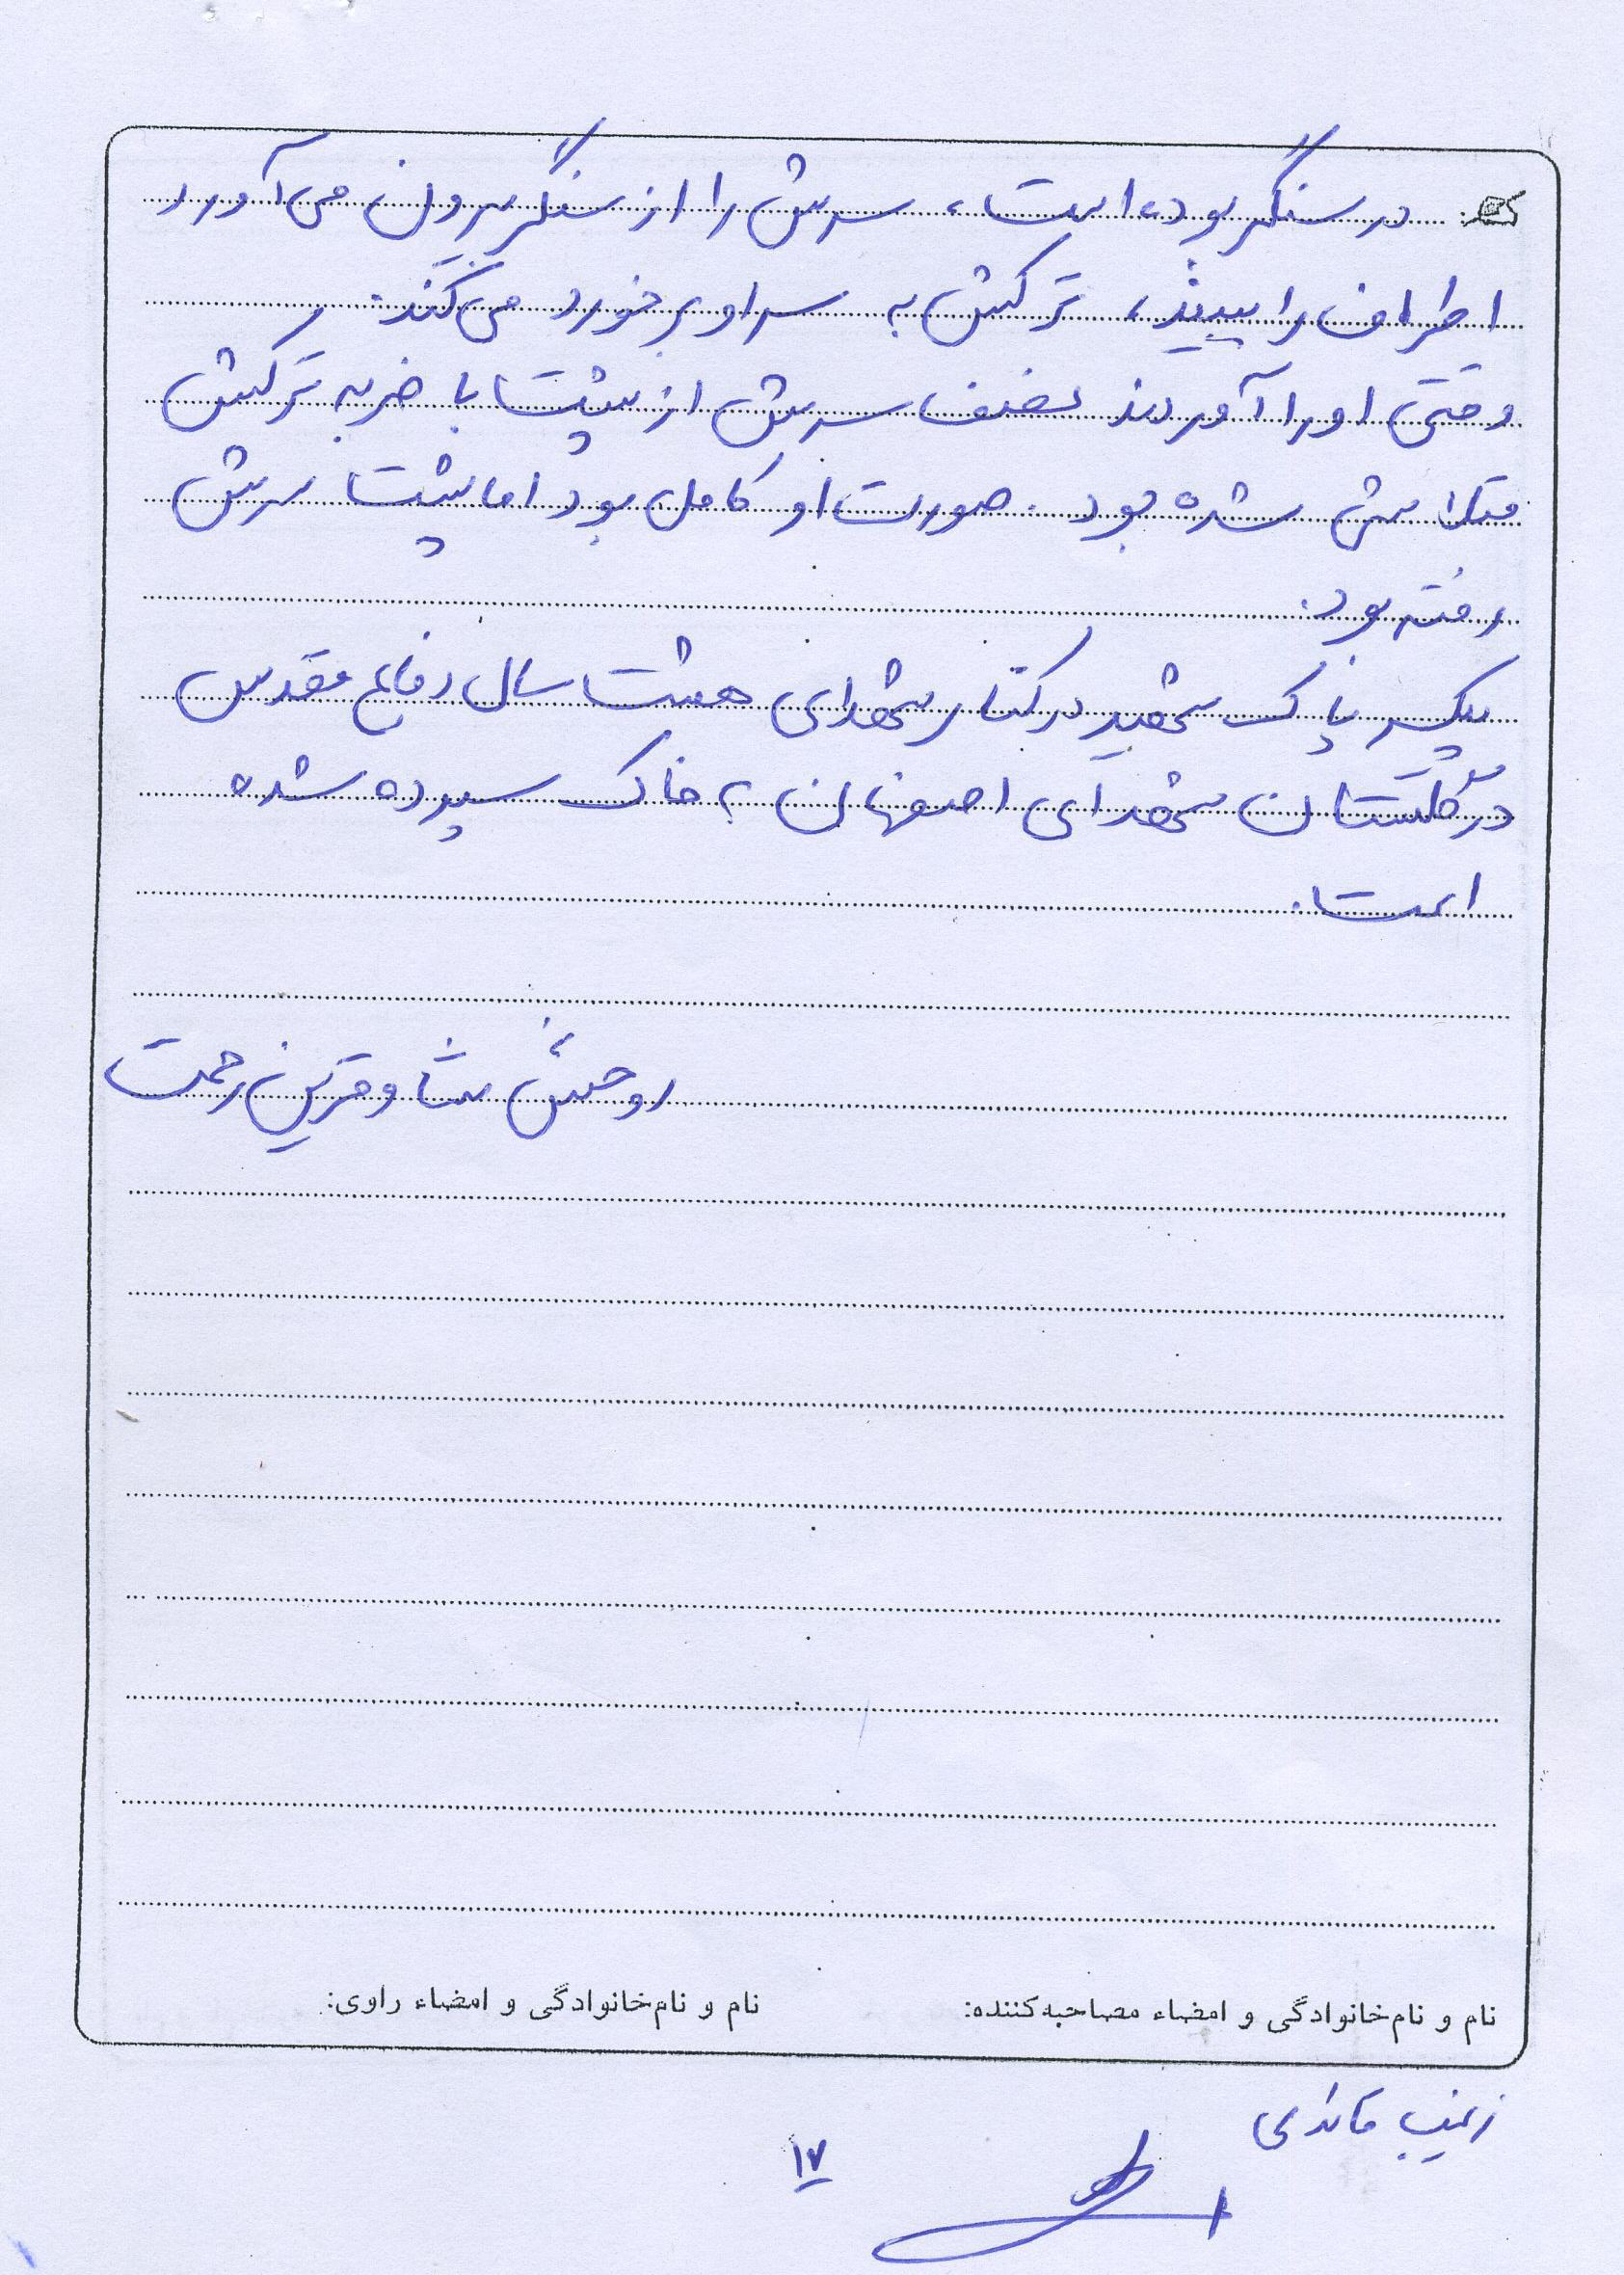 در سنگر بوده است، سرش را از سنگر بیرون می‌آورد
اطراف را ببیند، ترکش به سر او برخورد می‌کند.
وقتی او را آوردند نصف سرش از پشت با ضربه ترکش
متلاشی شده بود. صورت او کامل بود اما پشت سرش
رفته بود.
پیکر پاک شهید در کنار شهدای هشت سال دفاع مقدس
در گلستان شهدای اصفهان به خاک سپرده شده
است.
روحش شاد و قرین رحمت
نام و نام‌خانوادگی و امضاء مصاحبه‌کننده: نام و نام‌خانوادگی و امضاء راوی:
زینب
۱۷